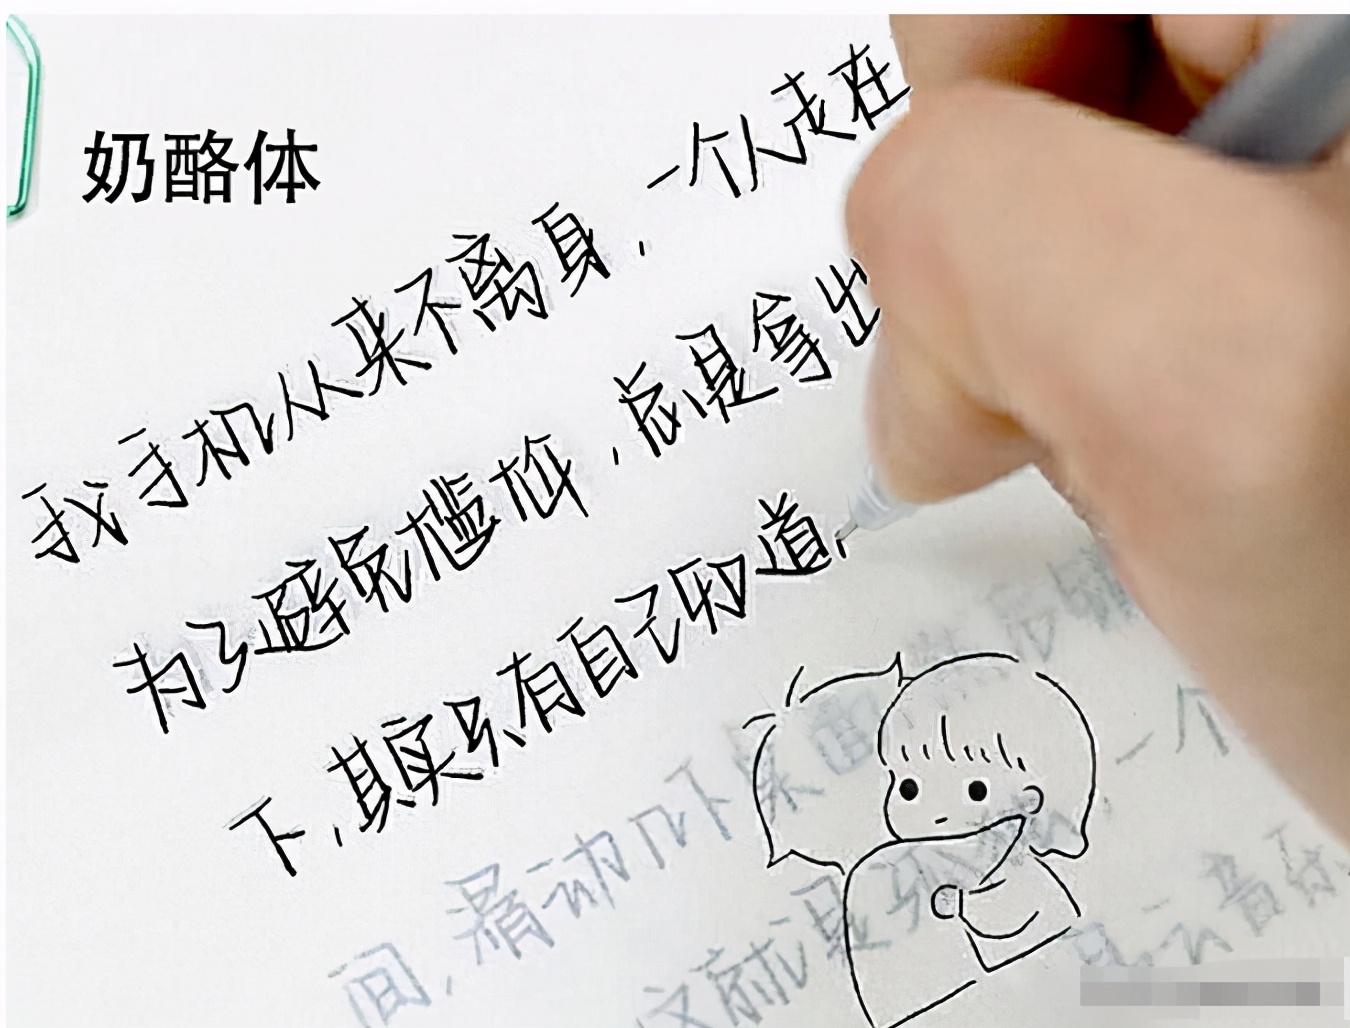 奶酪体
我手机从来不离身，一个人走在
为了避免尴尬，总是拿出
下，其实只有自己知道，
间，滑动几下桌面
一个